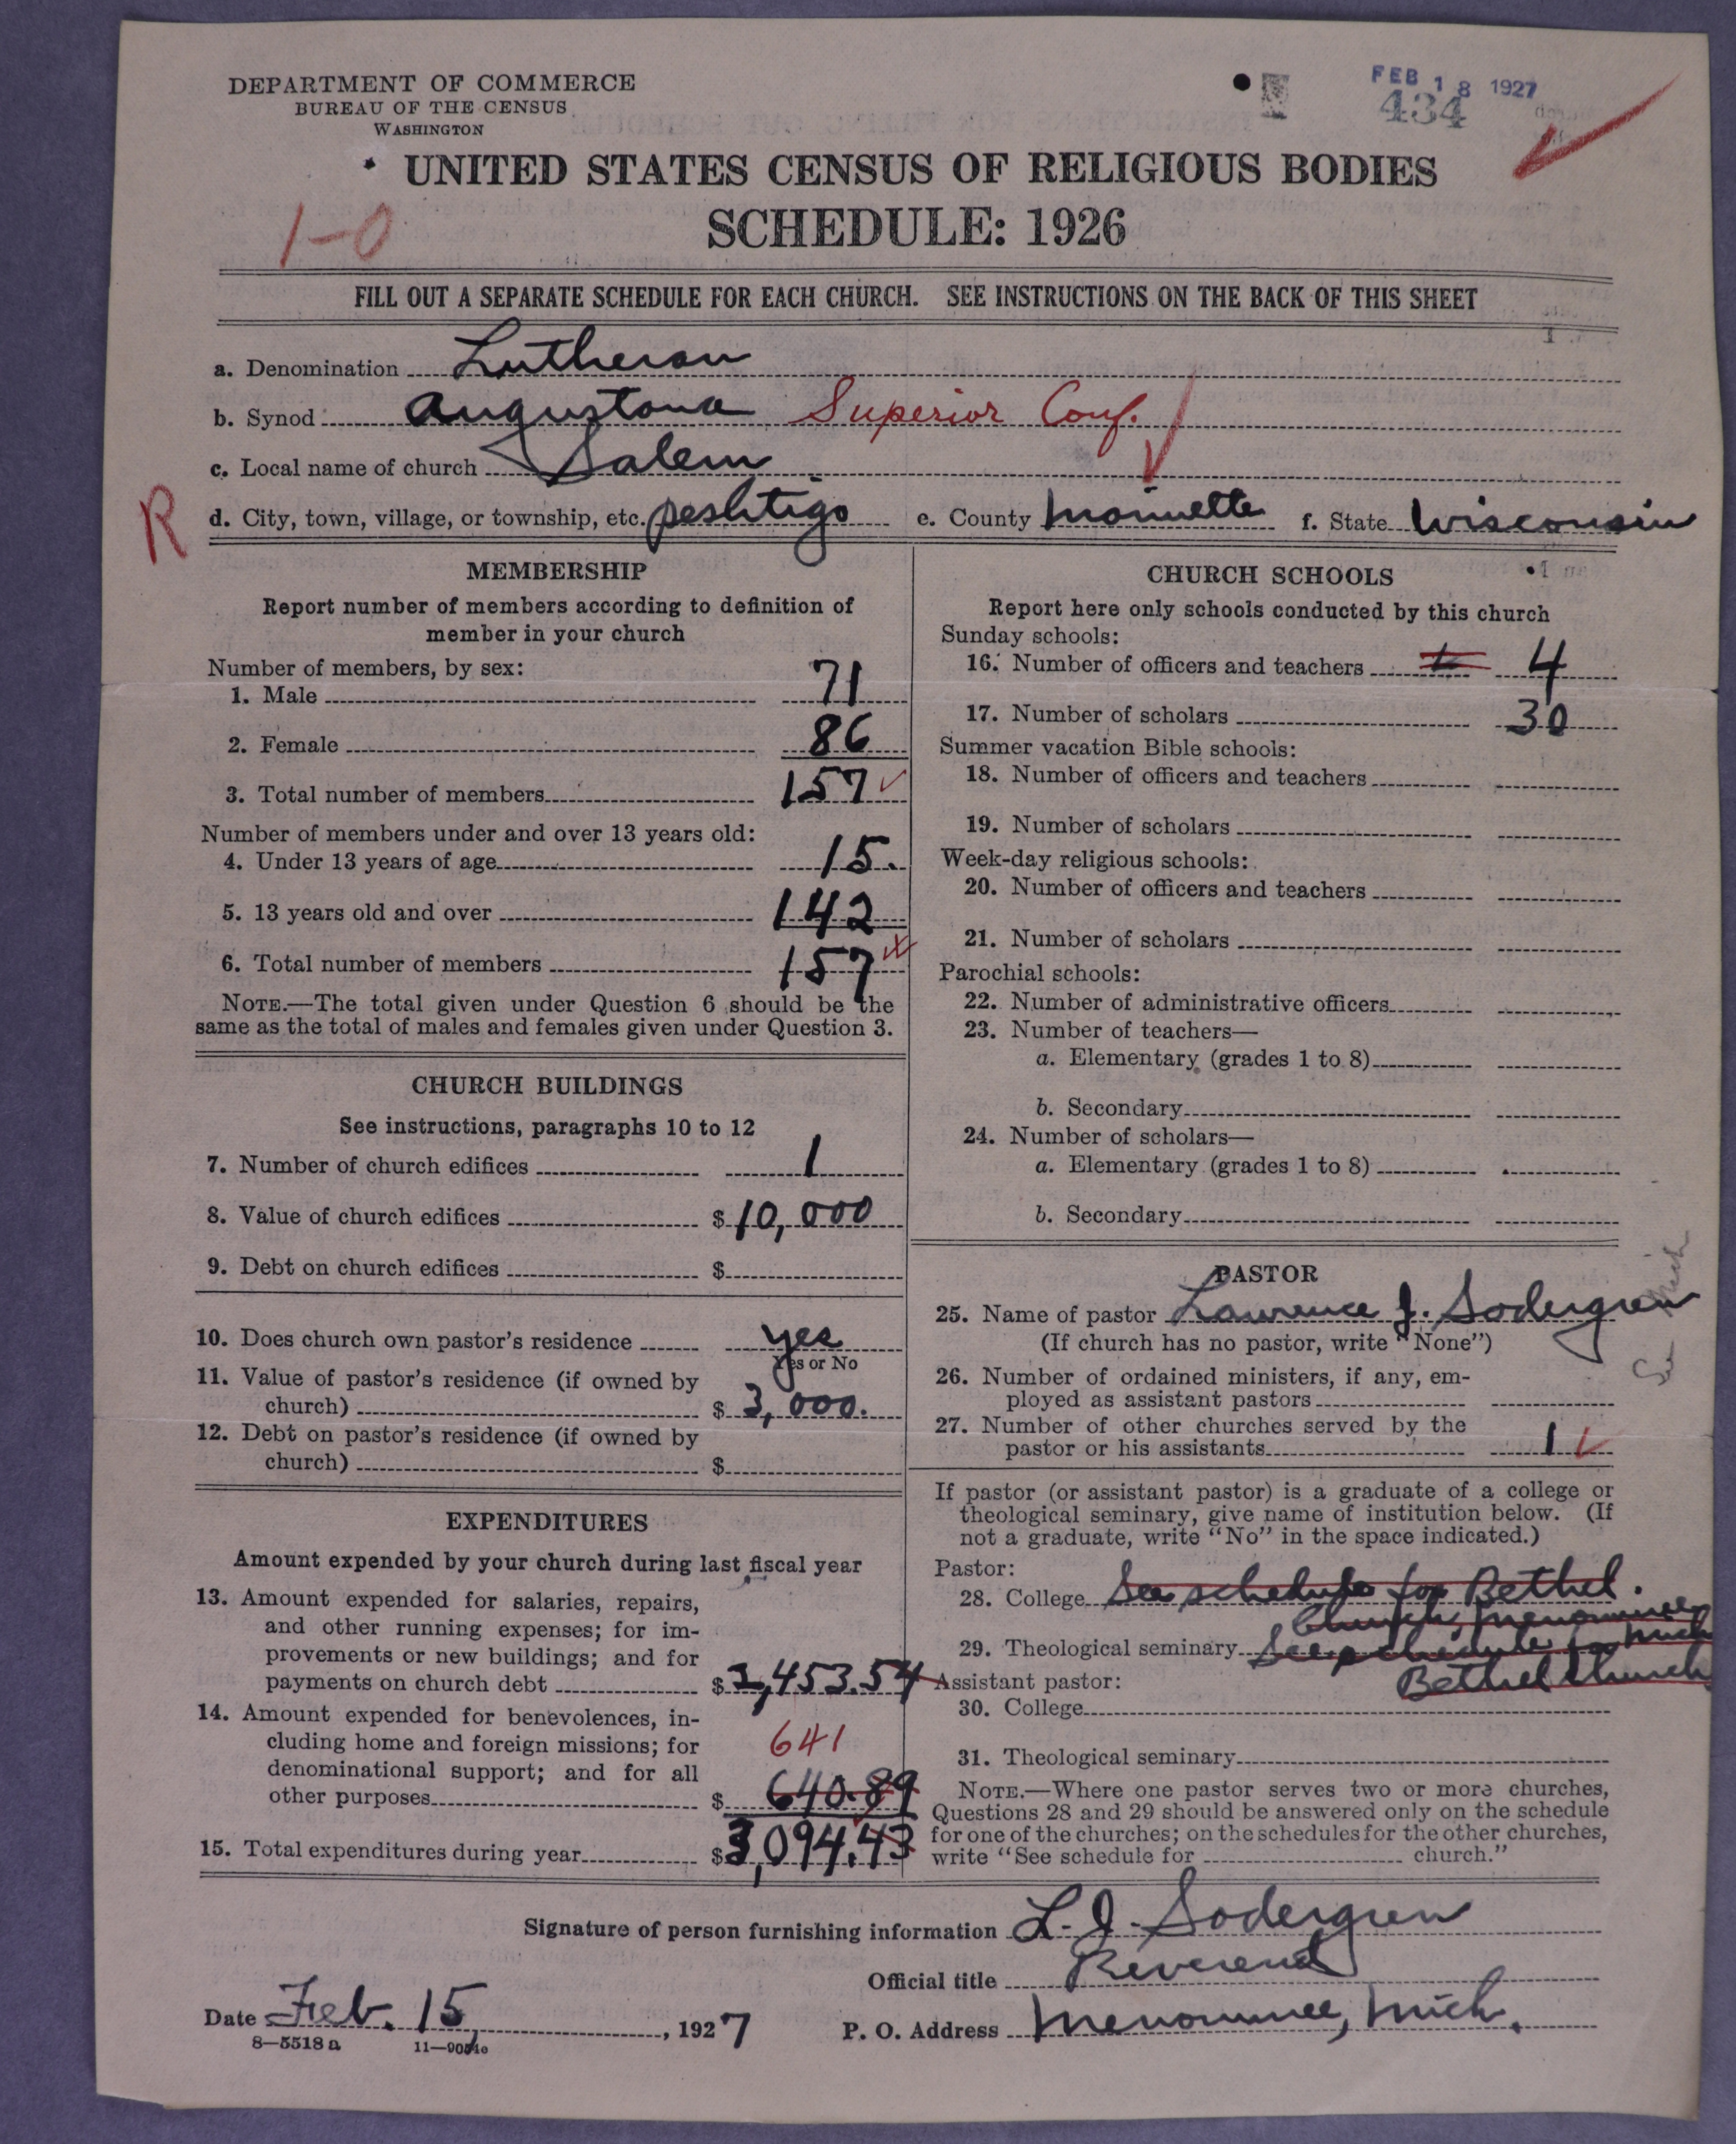 DEPARTMENT OF COMMERCE
BUREAU OF THE CENSUS
WASHINGTON
FEB 18 1927
434
UNITED STATES CENSUS OF RELIGIOUS BODIES
SCHEDULE: 1926
1-0
FILL OUT A SEPARATE SCHEDULE FOR EACH CHURCH. SEE INSTRUCTIONS ON THE BACK OF THIS SHEET
a. Denomination Lutheran
b. Synod Augustana Superior Conf.
c. Local name of church Salem
R
d. City, town, village, or township, etc. peshtigo e. County Marinette f. State Wisconsin
MEMBERSHIP
Report number of members according to definition of
member in your church
Number of members, by sex:
1. Male 71
2. Female 86
3. Total number of members 157
Number of members under and over 13 years old:
4. Under 13 years of age 15.
5. 13 years old and over 142
6. Total number of members 157
NOTE.—The total given under Question 6 should be the
same as the total of males and females given under Question 3.
CHURCH BUILDINGS
See instructions, paragraphs 10 to 12
7. Number of church edifices 1
8. Value of church edifices $ 10,000
9. Debt on church edifices $
10. Does church own pastor's residence yes
Yes or No
11. Value of pastor's residence (if owned by
church) $ 3,000.
12. Debt on pastor's residence (if owned by
church) $
EXPENDITURES
Amount expended by your church during last fiscal year
13. Amount expended for salaries, repairs,
and other running expenses; for im-
provements or new buildings; and for
payments on church debt $ 2,453.54
14. Amount expended for benevolences, in-
cluding home and foreign missions; for
denominational support; and for all
other purposes $ 640.89
641
15. Total expenditures during year $ 3,094.43
CHURCH SCHOOLS
Report here only schools conducted by this church
Sunday schools:
16. Number of officers and teachers 4
17. Number of scholars 30
Summer vacation Bible schools:
18. Number of officers and teachers
19. Number of scholars
Week-day religious schools:
20. Number of officers and teachers
21. Number of scholars
Parochial schools:
22. Number of administrative officers
23. Number of teachers—
a. Elementary (grades 1 to 8)
b. Secondary
24. Number of scholars—
a. Elementary (grades 1 to 8)
b. Secondary
PASTOR
25. Name of pastor Lawrence J. Sodergren
(If church has no pastor, write "None")
26. Number of ordained ministers, if any, em-
ployed as assistant pastors
27. Number of other churches served by the
pastor or his assistants 1
See Mich
If pastor (or assistant pastor) is a graduate of a college or
theological seminary, give name of institution below. (If
not a graduate, write "No" in the space indicated.)
Pastor:
28. College See schedule for Bethel.
Church, Menominee
29. Theological seminary See schedule for Mich
Bethel Church
Assistant pastor:
30. College
31. Theological seminary
NOTE.—Where one pastor serves two or more churches,
Questions 28 and 29 should be answered only on the schedule
for one of the churches; on the schedules for the other churches,
write "See schedule for church."
Signature of person furnishing information L. J. Sodergren
Official title Reverend
Date Feb. 15, 1927 P. O. Address Menominee, Mich.
8—5518 a